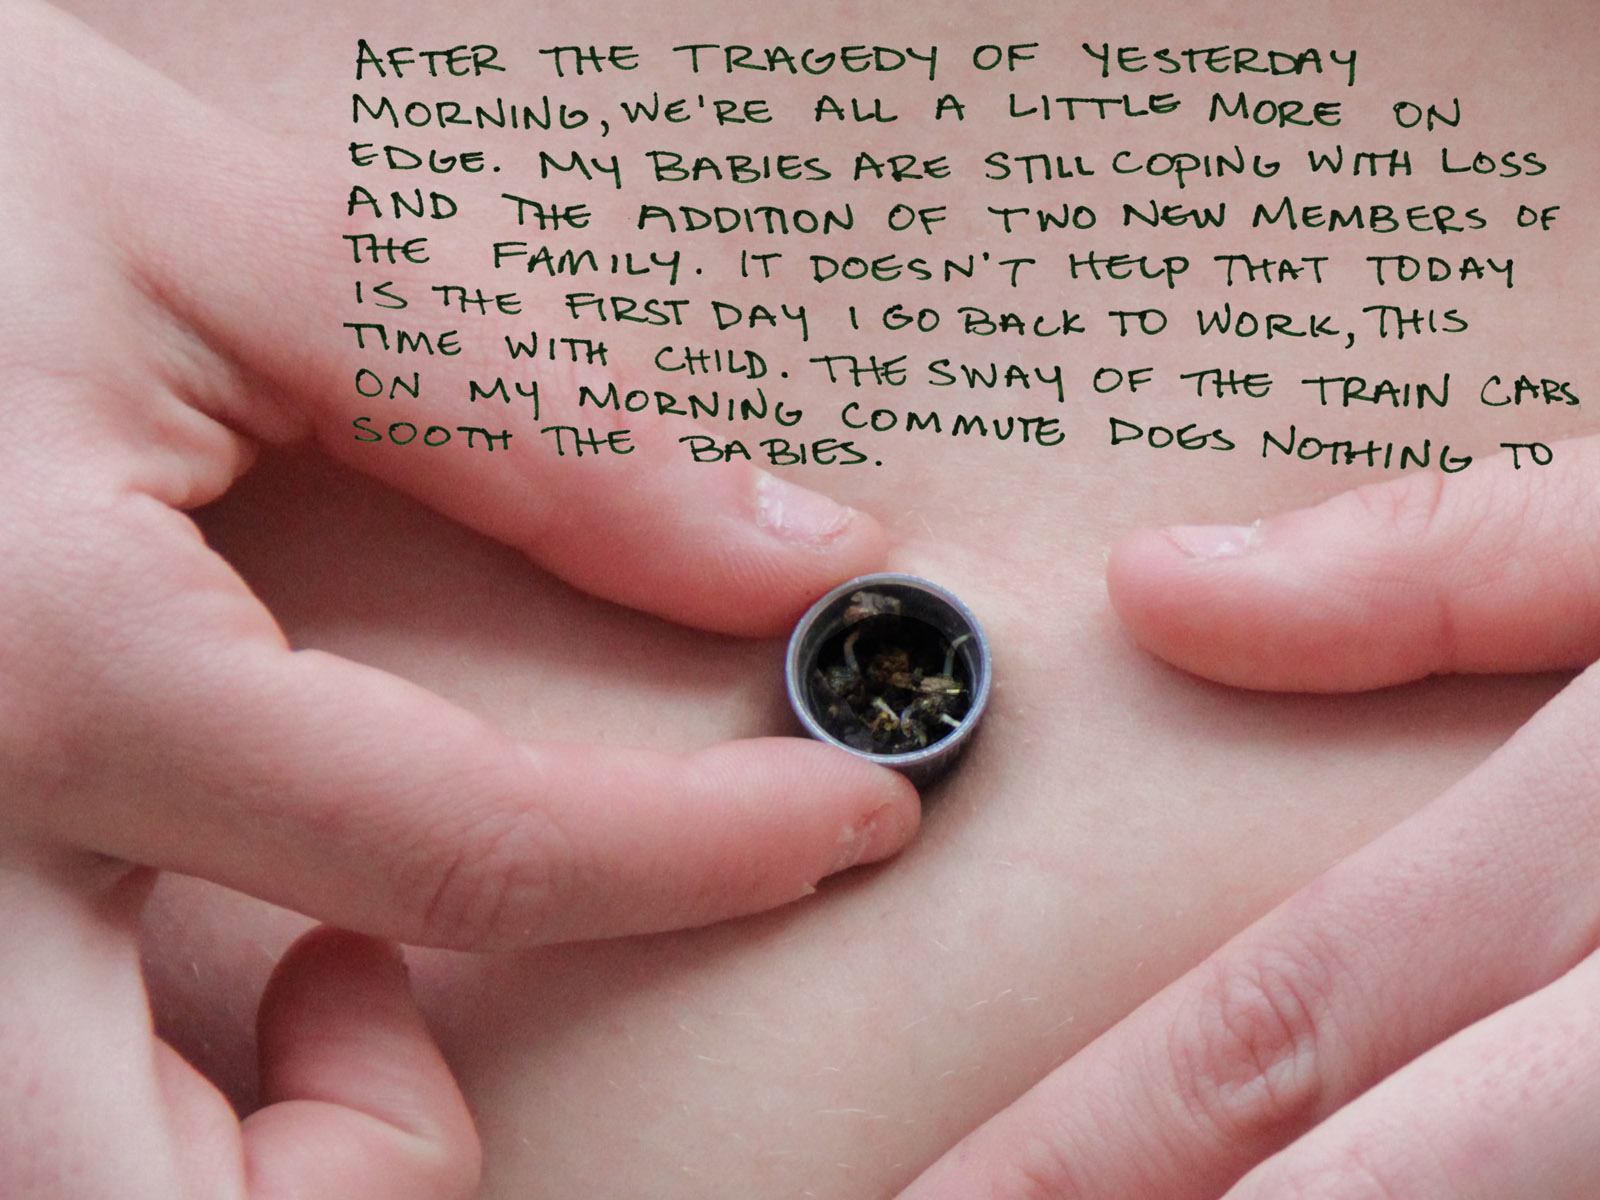 AFTER THE TRAGEDY OF YESTERDAY
MORNING, WE'RE ALL A LITTLE MORE ON
EDGE. MY BABIES ARE STILL COPING WITH LOSS
AND THE ADDITION OF TWO NEW MEMBERS OF
THE FAMILY. IT DOESN'T HELP THAT TODAY
IS THE FIRST DAY I GO BACK TO WORK, THIS
TIME WITH CHILD. THE SWAY OF THE TRAIN CARS
ON MY MORNING COMMUTE DOES NOTHING TO
SOOTH THE BABIES.